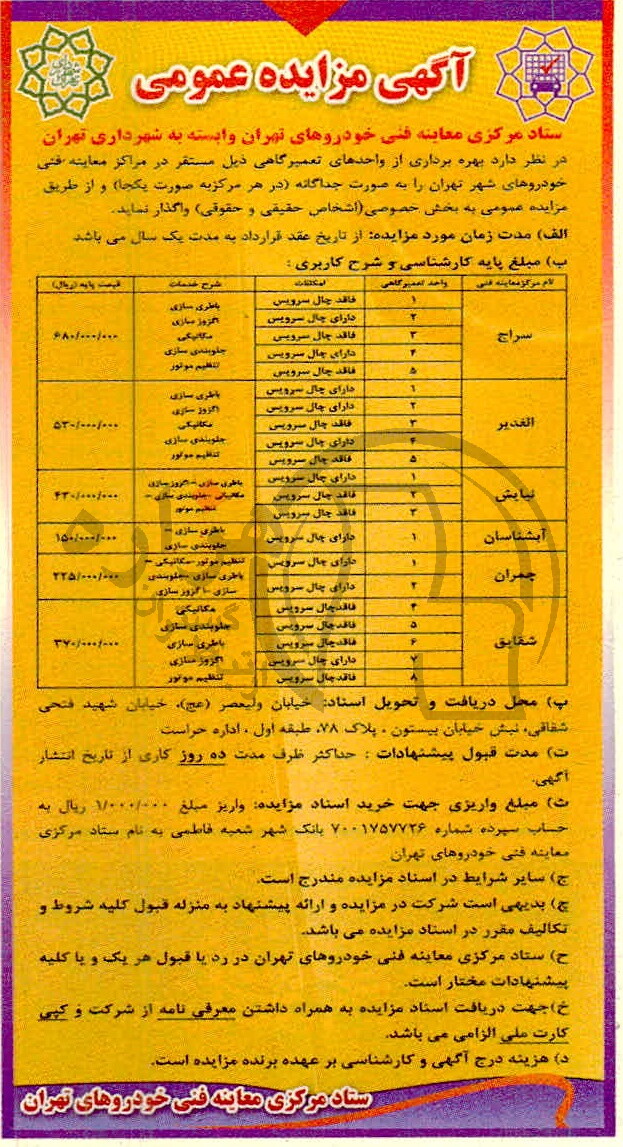 آگهی مزایده عمومی
ستاد مرکزی معاینه فنی خودروهای تهران وابسته به شهرداری تهران
در نظر دارد بهره برداری از واحدهای تعمیرگاهی ذیل مستقر در مراکز معاینه فنی
خودروهای شهر تهران را به صورت جداگانه (در هر مرکزبه صورت یکجا) و از طریق
مزایده عمومی به بخش خصوصی(اشخاص حقیقی و حقوقی) واگذار نماید.
الف) مدت زمان مورد مزایده: از تاریخ عقد قرارداد به مدت یک سال می باشد
ب) مبلغ پایه کارشناسی و شرح کاربری :
نام مرکزمعاینه فنی واحد تعمیرگاهی امکانات شرح خدمات قیمت پایه (ریال)
سراج
۱ فاقد چال سرویس
۲ دارای چال سرویس
۳ فاقد چال سرویس
۴ دارای چال سرویس
۵ فاقد چال سرویس
باطری سازی
اگزوز سازی
مکانیکی
جلوبندی سازی
تنظیم موتور
۶۸۰/۰۰۰/۰۰۰
الغدیر
۱ دارای چال سرویس
۲ دارای چال سرویس
۳ فاقد چال سرویس
۴ دارای چال سرویس
۵ فاقد چال سرویس
باطری سازی
اگزوز سازی
مکانیکی
جلوبندی سازی
تنظیم موتور
۵۳۰/۰۰۰/۰۰۰
نیایش
۱ دارای چال سرویس
۲ فاقد چال سرویس
۳ فاقد چال سرویس
باطری سازی –اگزوز سازی
مکانیکی –جلوبندی سازی –
تنظیم موتور
۴۳۰/۰۰۰/۰۰۰
آبشناسان
۱ دارای چال سرویس
باطری سازی –
جلوبندی سازی
۱۵۰/۰۰۰/۰۰۰
چمران
۱ دارای چال سرویس
۲ دارای چال سرویس
تنظیم موتور –مکانیکی –
باطری سازی –جلوبندی
سازی –اگزوز سازی
۲۲۵/۰۰۰/۰۰۰
شقایق
۴ فاقدچال سرویس
۵ فاقدچال سرویس
۶ فاقدچال سرویس
۷ دارای چال سرویس
۸ فاقدچال سرویس
مکانیکی
جلوبندی سازی
باطری سازی
اگزوز سازی
تنظیم موتور
۳۷۰/۰۰۰/۰۰۰
پ) محل دریافت و تحویل اسناد: خیابان ولیعصر (عج)، خیابان شهید فتحی
شقاقی، نبش خیابان بیستون ، پلاک ۷۸، طبقه اول ، اداره حراست
ت) مدت قبول پیشنهادات : حداکثر ظرف مدت ده روز کاری از تاریخ انتشار
آگهی.
ث) مبلغ واریزی جهت خرید اسناد مزایده: واریز مبلغ ۱/۰۰۰/۰۰۰ ریال به
حساب سپرده شماره ۷۰۰۱۷۵۷۷۲۶ بانک شهر شعبه فاطمی به نام ستاد مرکزی
معاینه فنی خودروهای تهران
ج) سایر شرایط در اسناد مزایده مندرج است.
چ) بدیهی است شرکت در مزایده و ارائه پیشنهاد به منزله قبول کلیه شروط و
تکالیف مقرر در اسناد مزایده می باشد.
ح) ستاد مرکزی معاینه فنی خودروهای تهران در رد یا قبول هر یک و یا کلیه
پیشنهادات مختار است.
خ)جهت دریافت اسناد مزایده به همراه داشتن معرفی نامه از شرکت و کپی
کارت ملی الزامی می باشد.
د) هزینه درج آگهی و کارشناسی بر عهده برنده مزایده است.
ستاد مرکزی معاینه فنی خودروهای تهران